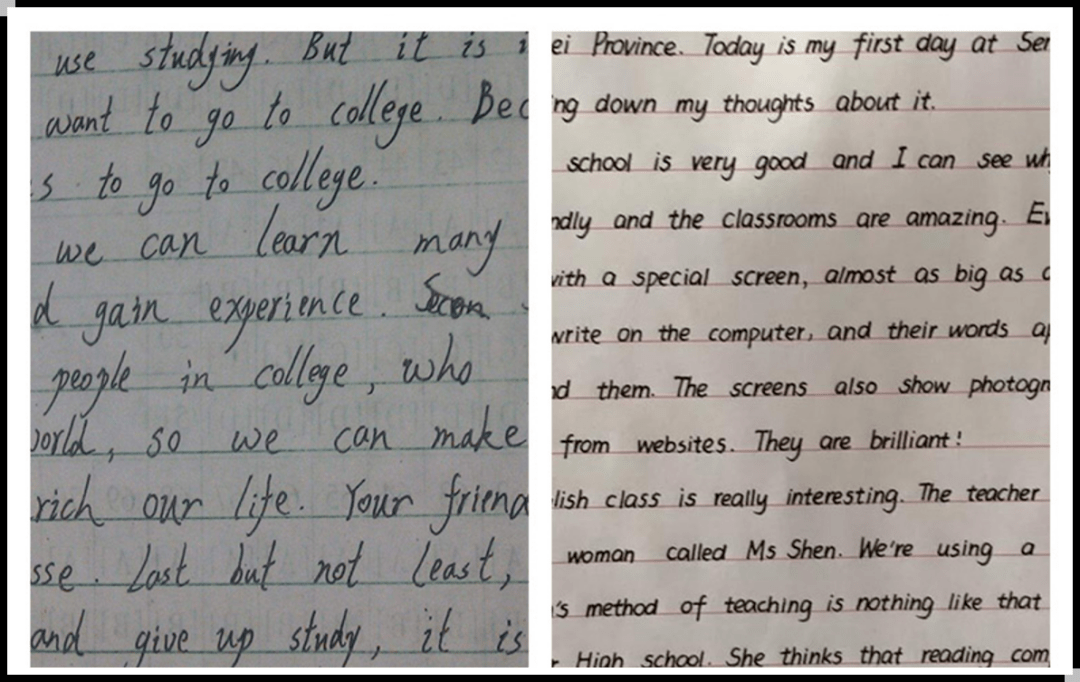 use studying. But it is
want to go to college. Bec
s to go to college.
we can learn many
d gain experience.
people in college, who
orld, so we can make
rich our life. Your friend
sse. Last but not least,
and give up study, it is
ei Province. Today is my first day at Sen
ng down my thoughts about it.
school is very good and I can see wh
ndly and the classrooms are amazing. Ev
with a special screen, almost as big as
write on the computer, and their words ap
nd them. The screens also show photogr
from websites. They are brilliant!
lish class is really interesting. The teacher
woman called Ms Shen. We're using a
's method of teaching is nothing like that
High school. She thinks that reading com